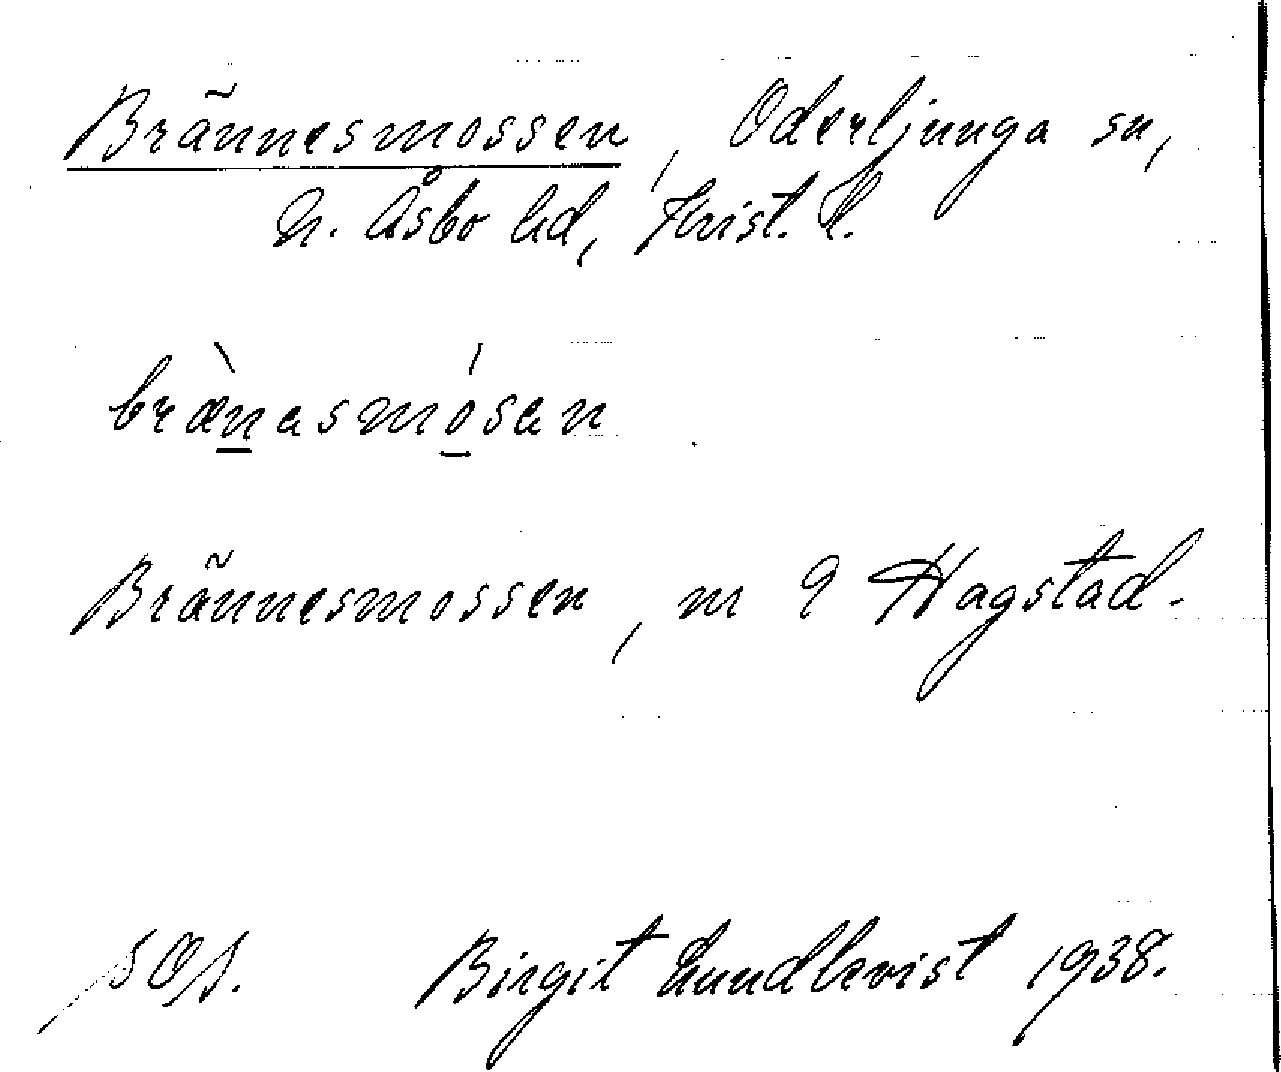 Brännesmossen, Oderljunga sn,
N. Åsbo hd, Krist. l.
brænasmósan
Brännesmossen, m 9 Hagstad.
SOA. Birgit Lundkvist 1938.